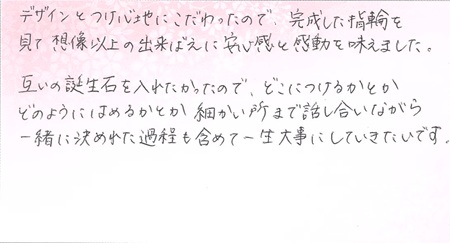 デザインとつけ心地にこだわったので、完成した指輪を
見て想像以上の出来ばえに安心感と感動を味えました。
互いの誕生石を入れたかったので、どこにつけるかとか
どのようにはめるかとか細かい所まで話し合いながら
一緒に決めれた過程も含めて一生大事にしていきたいです。